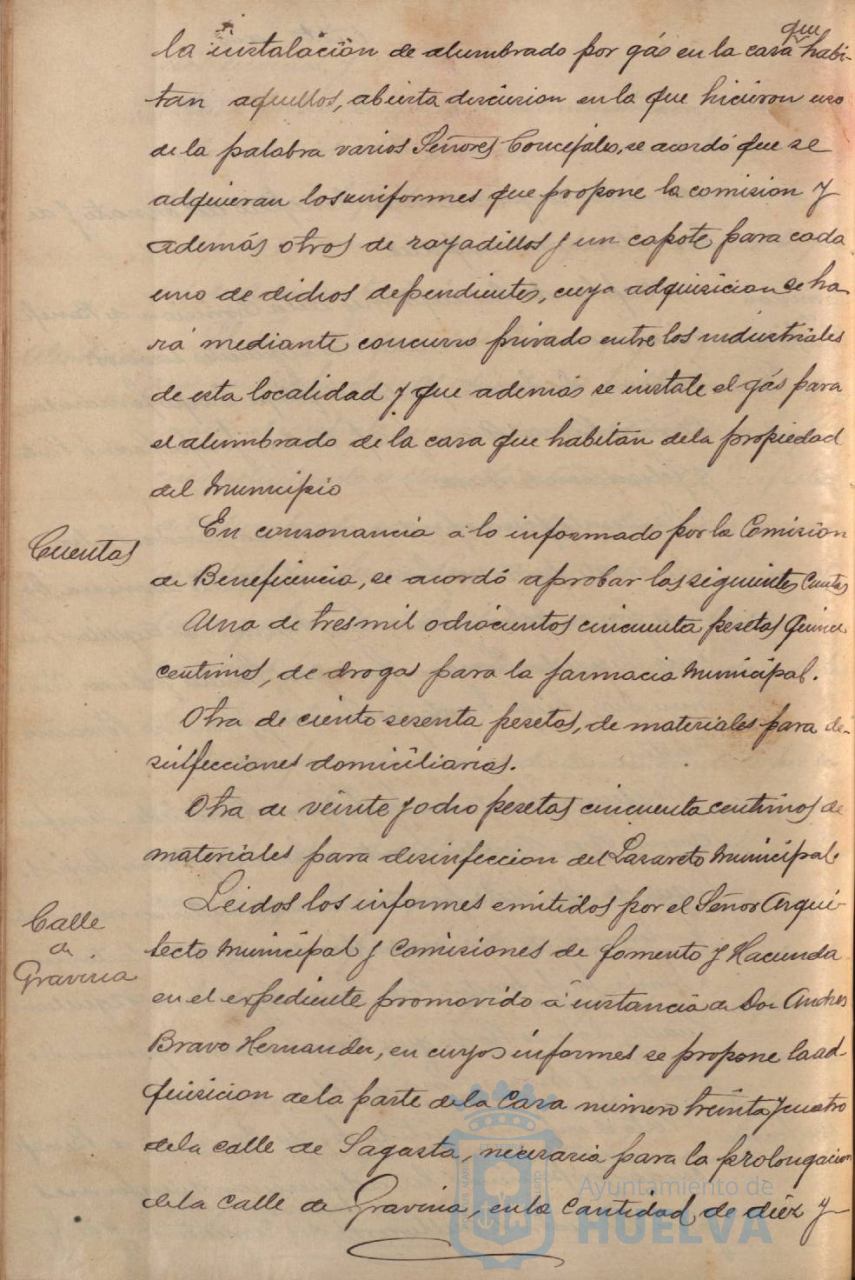 que
la instalación de alumbrado por gás en la casa habi-
tan aquellos, abierta discusion en la que hicieron uso
de la palabra varios Señores Concejales, se acordó que se
adquieran los uniformes que propone la comision y
además otros de rayadillos y un capote para cada
uno de dichos dependientes, cuya adquisicion se ha-
rá mediante concurso privado entre los industriales
de esta localidad y que además se instale el gás para
el alumbrado de la casa que habitan de la propiedad
del Municipio
Cuentas
En consonancia a lo informado por la Comision
de Beneficencia, se acordó aprobar las siguientes Cuentas
Una de tres mil ochocientos cincuenta pesetas quince
centimos, de drogas para la farmacia Municipal.
Otra de ciento sesenta pesetas, de materiales para de-
sinfecciones domiciliarias.
Otra de veinte y ocho pesetas cincuenta centimos de
materiales para desinfeccion del Lazareto Municipal
Calle
de
Gravina
Leidos los informes emitidos por el Señor Arqui-
tecto Municipal y Comisiones de Fomento y Hacienda
en el expediente promovido á instancia de Don Andres
Bravo Hernandez, en cuyos informes se propone la ad-
quisicion de la parte de la Casa número treinta y cuatro
de la calle de Sagasta, necesaria para la prolongacion
de la calle de Gravina, en la cantidad de diez y
Ayuntamiento de
HUELVA